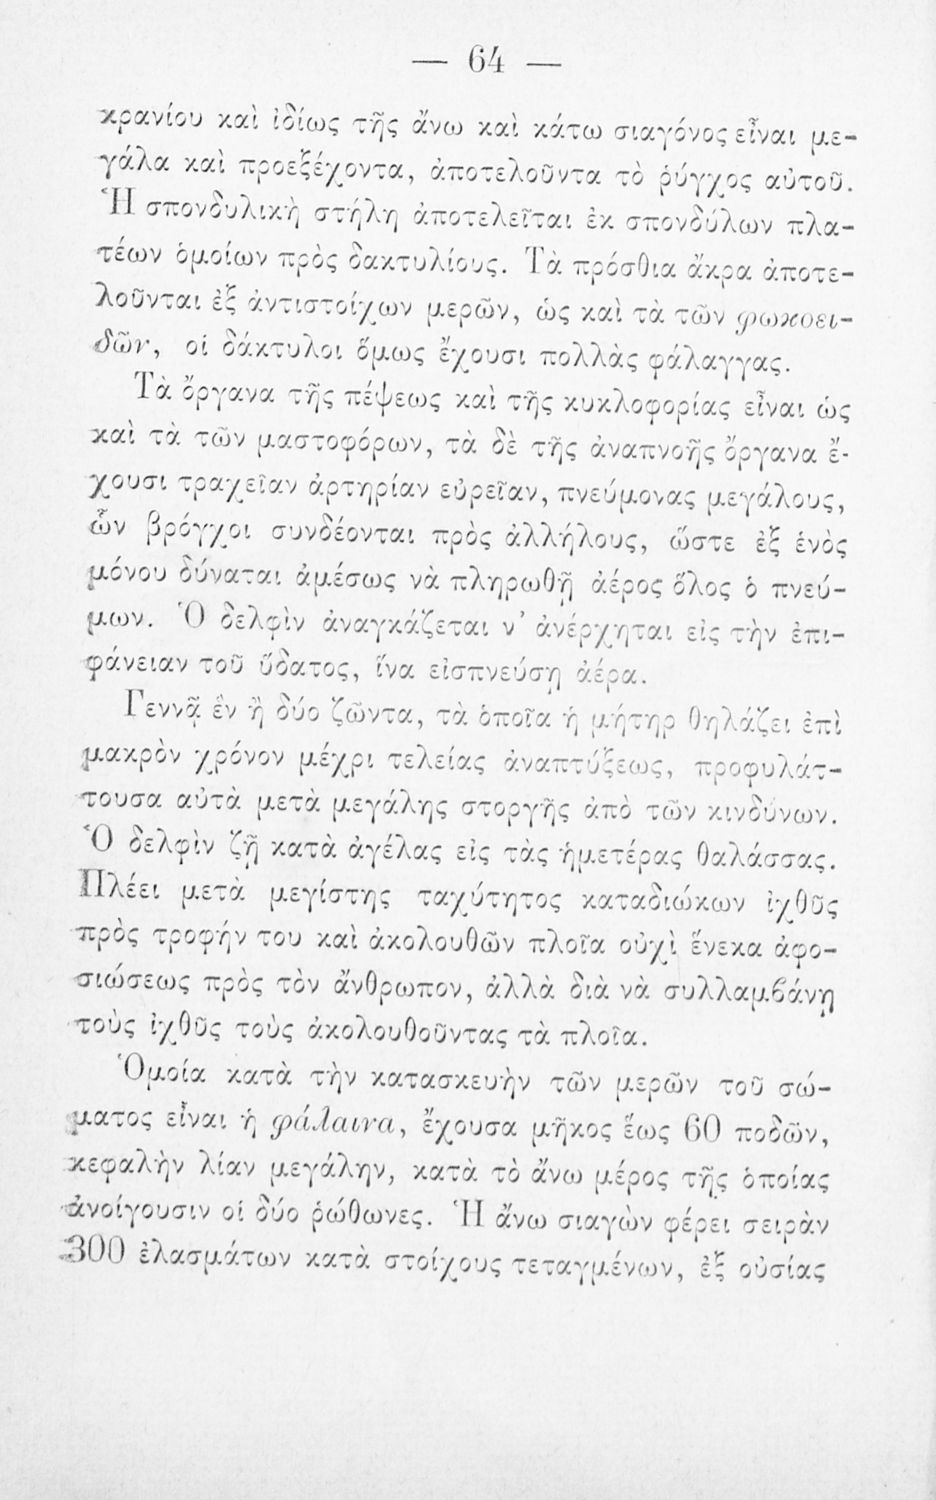 — 64 —
κρανίου καὶ ἰδίως τῆς ἄνω καὶ κάτω σιαγόνος εἶναι με-
γάλα καὶ προεξέχοντα, ἀποτελοῦντα τὸ ῥύγχος αὐτοῦ.
Ἡ σπονδυλικὴ στήλη ἀποτελεῖται ἐκ σπονδύλων πλα-
τέων ὁμοίων πρὸς δακτυλίους. Τὰ πρόσθια ἄκρα ἀποτε-
λοῦνται ἐξ ἀντιστοίχων μερῶν, ὡς καὶ τὰ τῶν φωκοει-
δῶν, οἱ δάκτυλοι ὅμως ἔχουσι πολλὰς φάλαγγας.
Τὰ ὄργανα τῆς πέψεως καὶ τῆς κυκλοφορίας εἶναι ὡς
καὶ τὰ τῶν μαστοφόρων, τὰ δὲ τῆς ἀναπνοῆς ὄργανα ἔ-
χουσι τραχεῖαν ἀρτηρίαν εὐρεῖαν, πνεύμονας μεγάλους,
ὧν βρόγχοι συνδέονται πρὸς ἀλλήλους, ὥστε ἐξ ἑνὸς
μόνου δύναται ἀμέσως νὰ πληρωθῇ ἀέρος ὅλος ὁ πνεύ-
μων. Ὁ δελφὶν ἀναγκάζεται ν’ ἀνέρχηται εἰς τὴν ἐπι-
φάνειαν τοῦ ὕδατος, ἵνα εἰσπνεύσῃ ἀέρα.
Γεννᾷ ἓν ἢ δύο ζῶντα, τὰ ὁποῖα ἡ μήτηρ θηλάζει ἐπὶ
μακρὸν χρόνον μέχρι τελείας ἀναπτύξεως, προφυλάτ-
τουσα αὐτὰ μετὰ μεγάλης στοργῆς ἀπὸ τῶν κινδύνων.
Ὁ δελφὶν ζῇ κατὰ ἀγέλας εἰς τὰς ἡμετέρας θαλάσσας.
Πλέει μετὰ μεγίστης ταχύτητος καταδιώκων ἰχθῦς
πρὸς τροφήν του καὶ ἀκολουθῶν πλοῖα οὐχὶ ἕνεκα ἀφο-
σιώσεως πρὸς τὸν ἄνθρωπον, ἀλλὰ διὰ νὰ συλλαμβάνῃ
τοὺς ἰχθῦς τοὺς ἀκολουθοῦντας τὰ πλοῖα.
Ὁμοία κατὰ τὴν κατασκευὴν τῶν μερῶν τοῦ σώ-
ματος εἶναι ἡ φάλαινα, ἔχουσα μῆκος ἕως 60 ποδῶν,
κεφαλὴν λίαν μεγάλην, κατὰ τὸ ἄνω μέρος τῆς ὁποίας
ἀνοίγουσιν οἱ δύο ῥώθωνες. Ἡ ἄνω σιαγὼν φέρει σειρὰν
300 ἐλασμάτων κατὰ στοίχους τεταγμένων, ἐξ οὐσίας